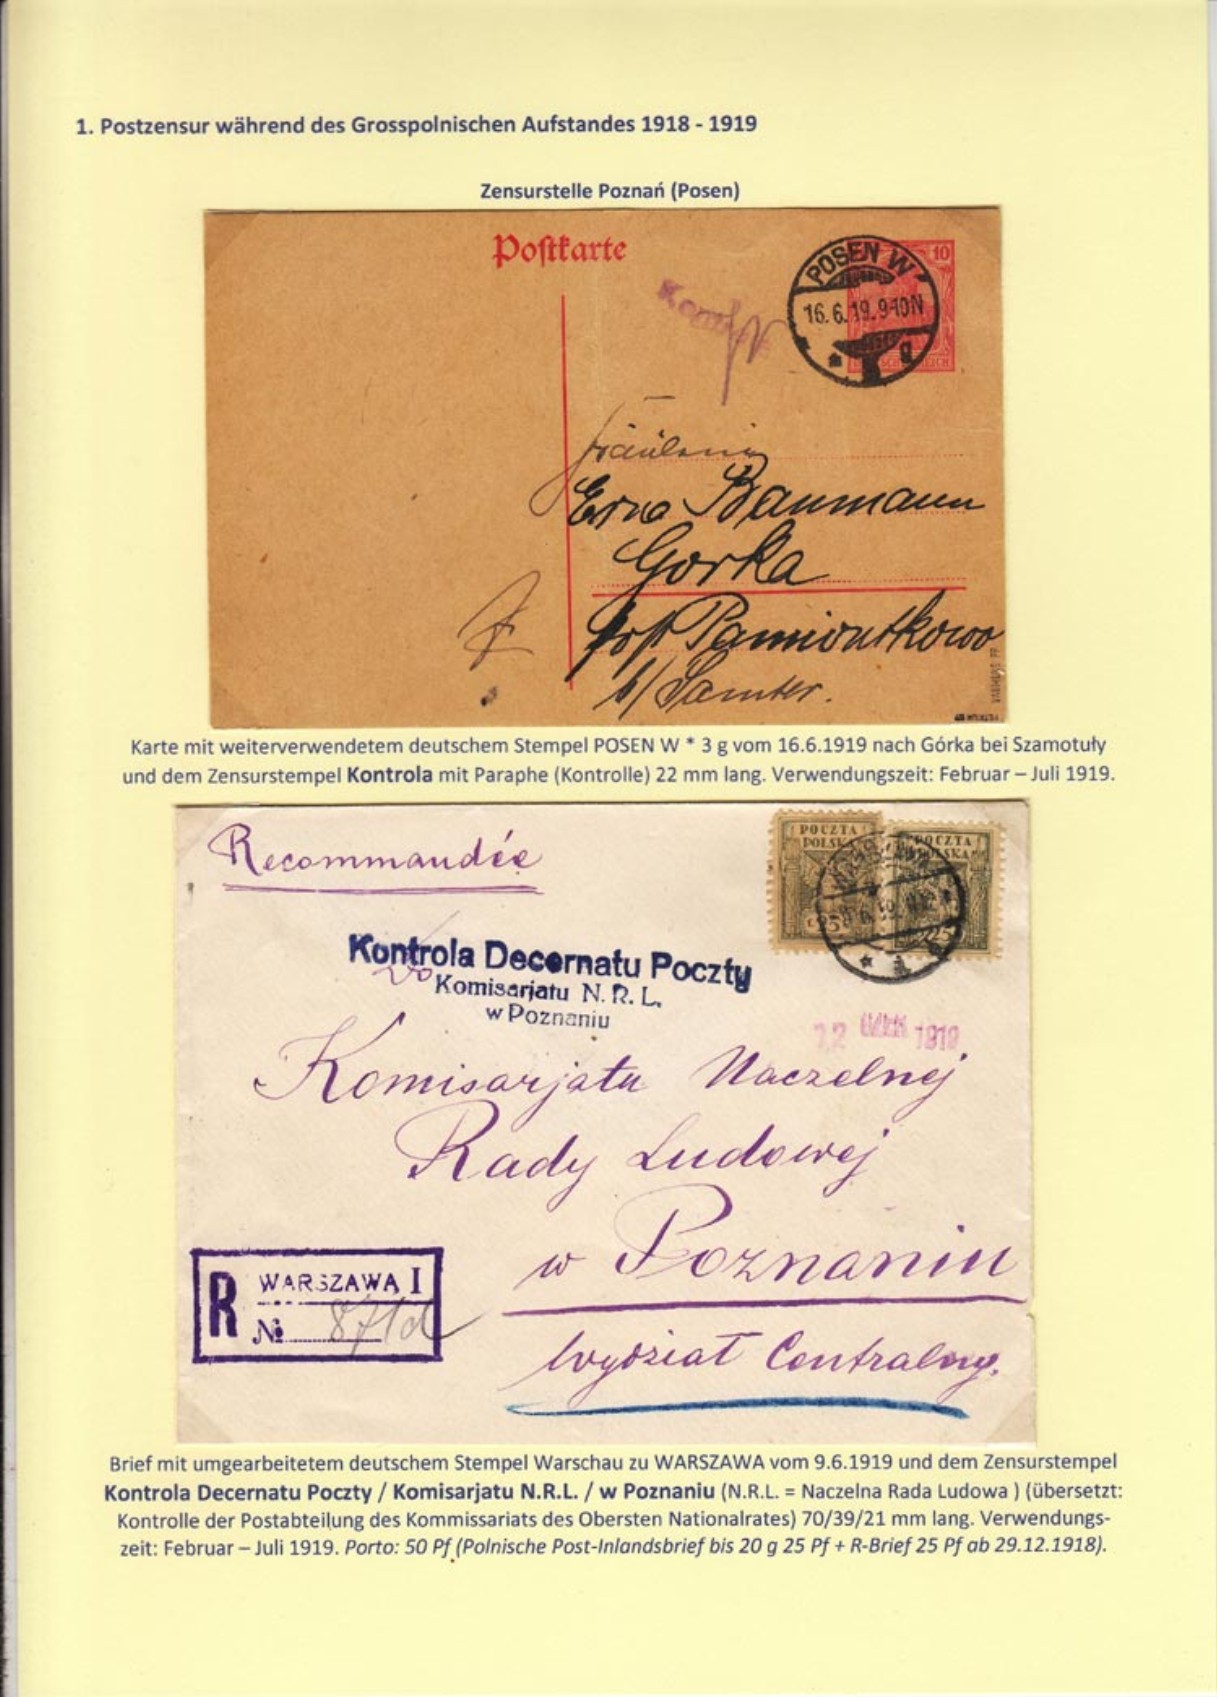 1. Postzensur während des Grosspolnischen Aufstandes 1918 - 1919
Zensurstelle Poznań (Posen)
Postkarte
10
POSEN W
16.6.19.9-10N
* g
Fräulein
Erna Baumann
Gorka
Post Pamiontkowo
b/ Samter.
Karte mit weiterverwendetem deutschem Stempel POSEN W * 3 g vom 16.6.1919 nach Górka bei Szamotuły
und dem Zensurstempel Kontrola mit Paraphe (Kontrolle) 22 mm lang. Verwendungszeit: Februar – Juli 1919.
Recommandée
POCZTA
POLSKA
25
POCZTA
POLSKA
25
Kontrola Decernatu Poczty
Komisarjatu N. R. L.
w Poznaniu
12 1919
Komisarjatu Naczelnej
Rady Ludowej
w Poznaniu
Wydział Centralny.
R WARSZAWA I
№ 871d
Brief mit umgearbeitetem deutschem Stempel Warschau zu WARSZAWA vom 9.6.1919 und dem Zensurstempel
Kontrola Decernatu Poczty / Komisarjatu N.R.L. / w Poznaniu (N.R.L. = Naczelna Rada Ludowa ) (übersetzt:
Kontrolle der Postabteilung des Kommissariats des Obersten Nationalrates) 70/39/21 mm lang. Verwendungs-
zeit: Februar – Juli 1919. Porto: 50 Pf (Polnische Post-Inlandsbrief bis 20 g 25 Pf + R-Brief 25 Pf ab 29.12.1918).